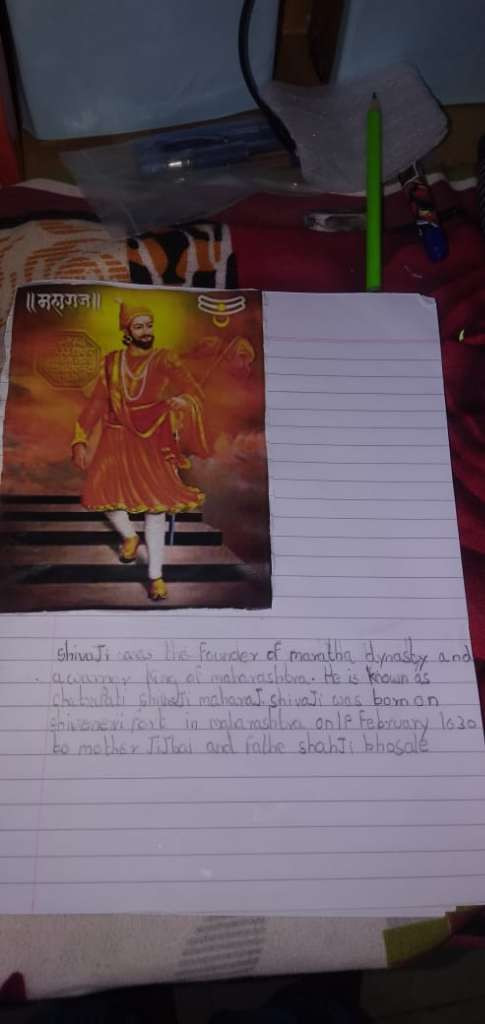 ॥महाराज॥
shivaJi was the founder of maratha dynasty and
a warrior king of maharashtra. He is known as
chatrpati shivaJi maharaJ. shivaJi was born on
shivaneri fort in maharashtra on February 1630
to mother JiJbai and fathe shahJi bhosale